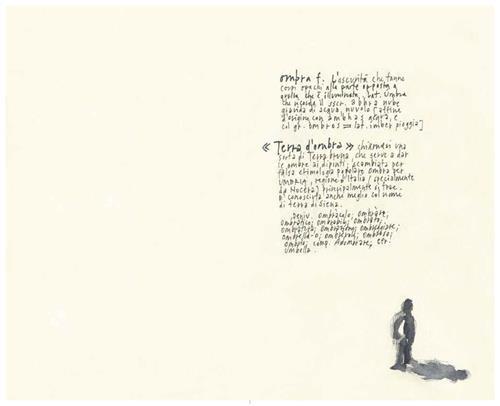 ombra f. L'oscurità che fanno
corpi opachi alla parte opposta a
quella che è illuminata. Lat. Umbra
che ricorda il sscr. abhra nube
gravida di acqua, nuvolo [affine
d'origine con ambhas acqua, e
col gr. ombros = lat. imber pioggia]
« Terra d'ombra » chiamasi una
sorta di Terra bruna, che serve a dar
le ombre ai dipinti; scambiata per
falsa etimologia popolare Ombra per
UMBRIA, regione d'Italia (specialmente
da Nocera) principalmente si trae.
È conosciuta anche meglio col nome
di terra di Siena.
Deriv. Ombraculo; Ombrare;
Ombratico; Ombrabile; Ombrato;
Ombratura; Ombrazione; Ombreggiare;
Ombrella-o; Ombrevole; Ombroso;
Ombrìa; Comp. Adombrare, etc.
Umbella.